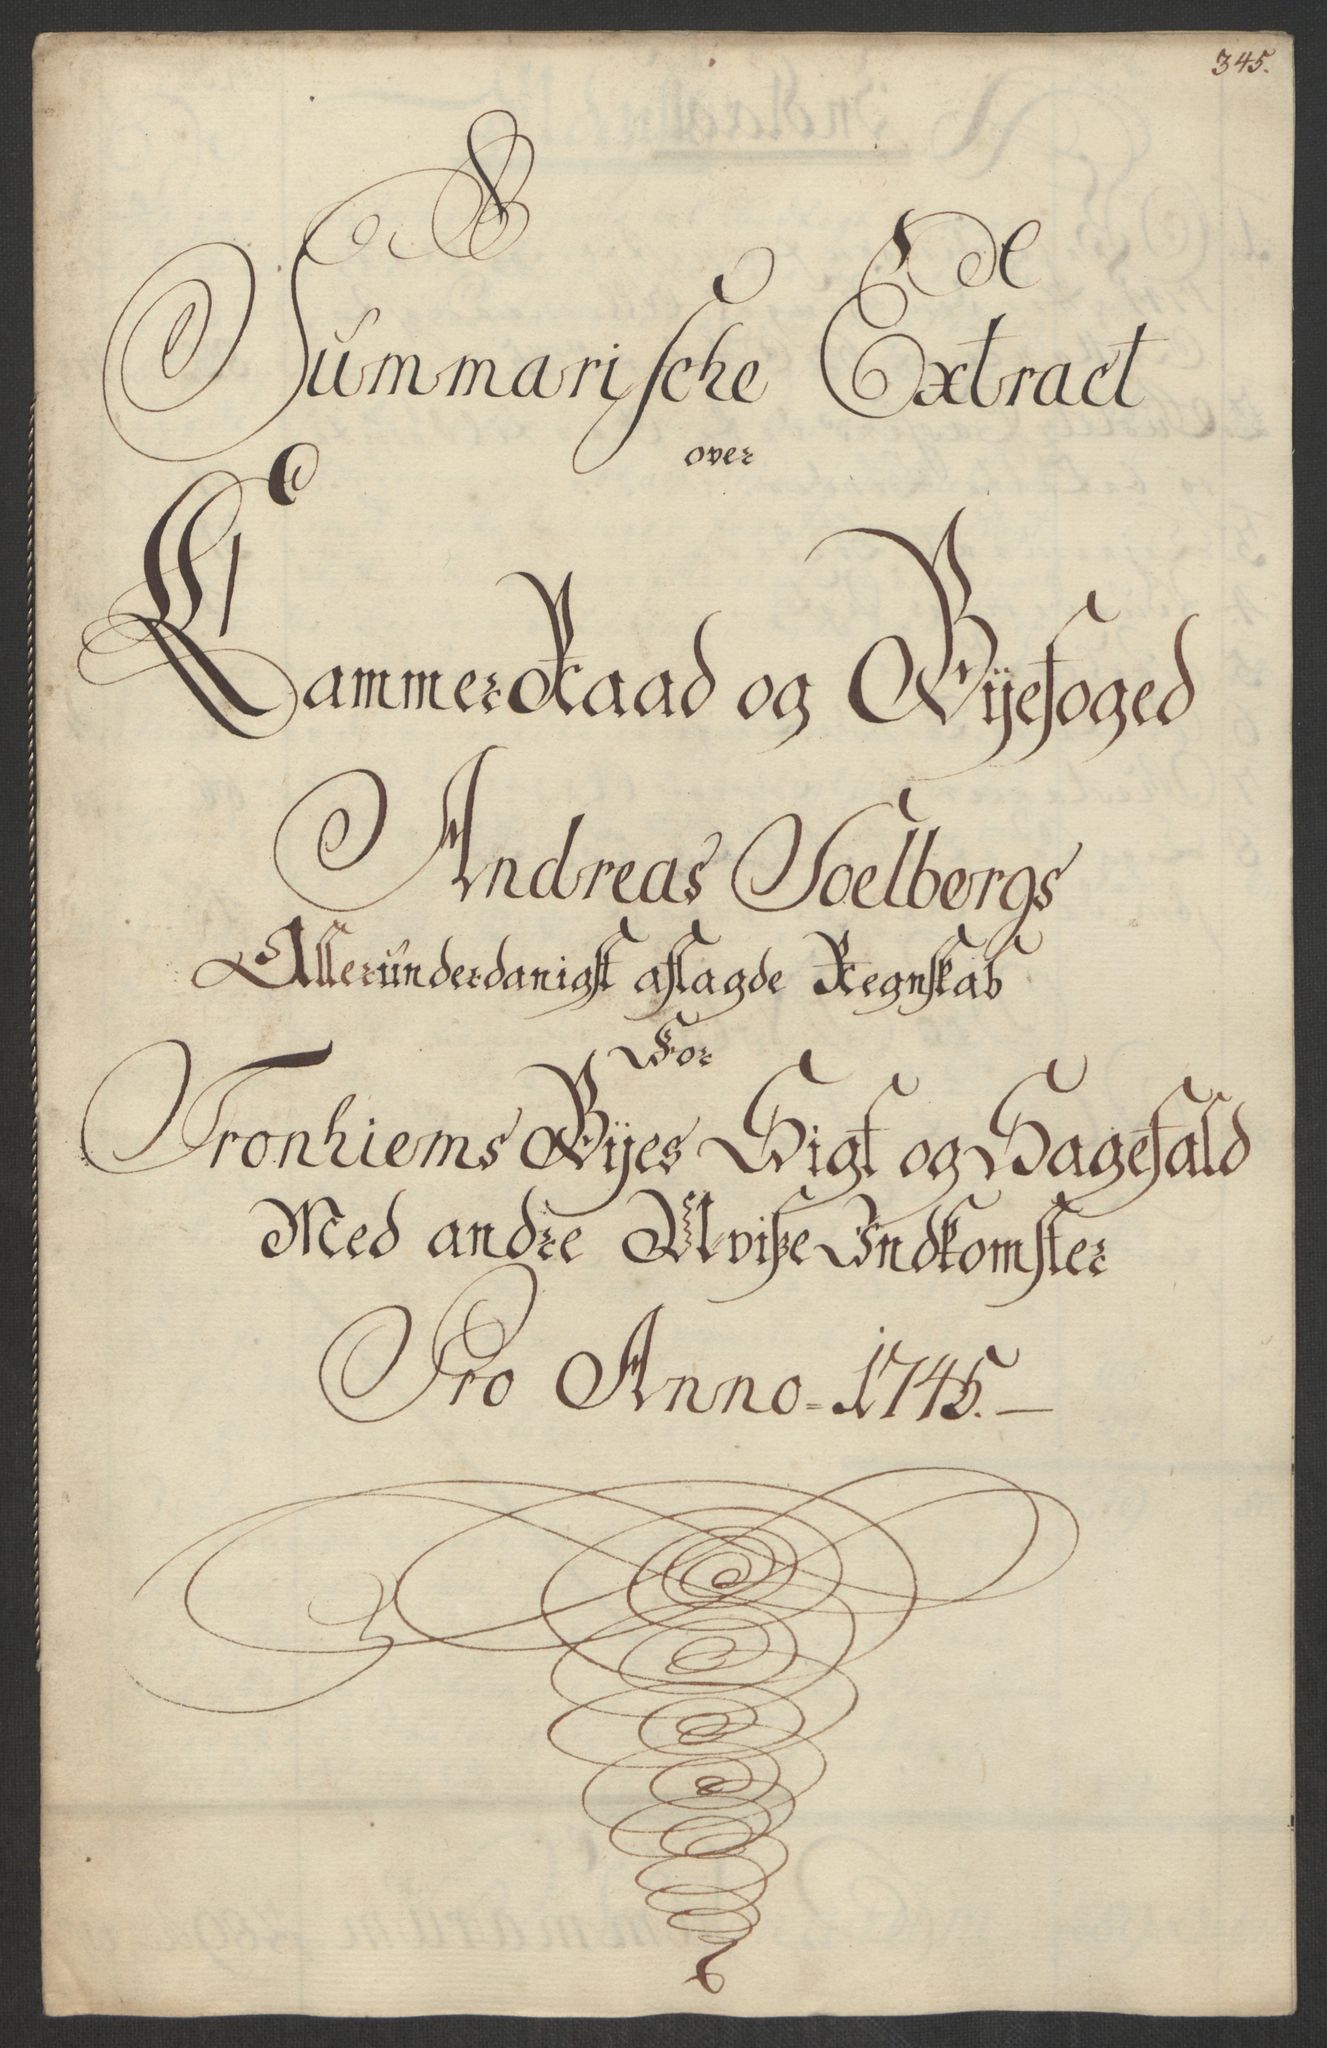 345.
Summarische Extract
over
Cammer Raad og Bÿefoged
Andreas Soelbergs
Alleründerdanigst aflagde Regnskab
For
Tronhiems Bÿes Sigt og Sagefald
Med andre Uvisse Indkomster
Pro Anno = 1745. —